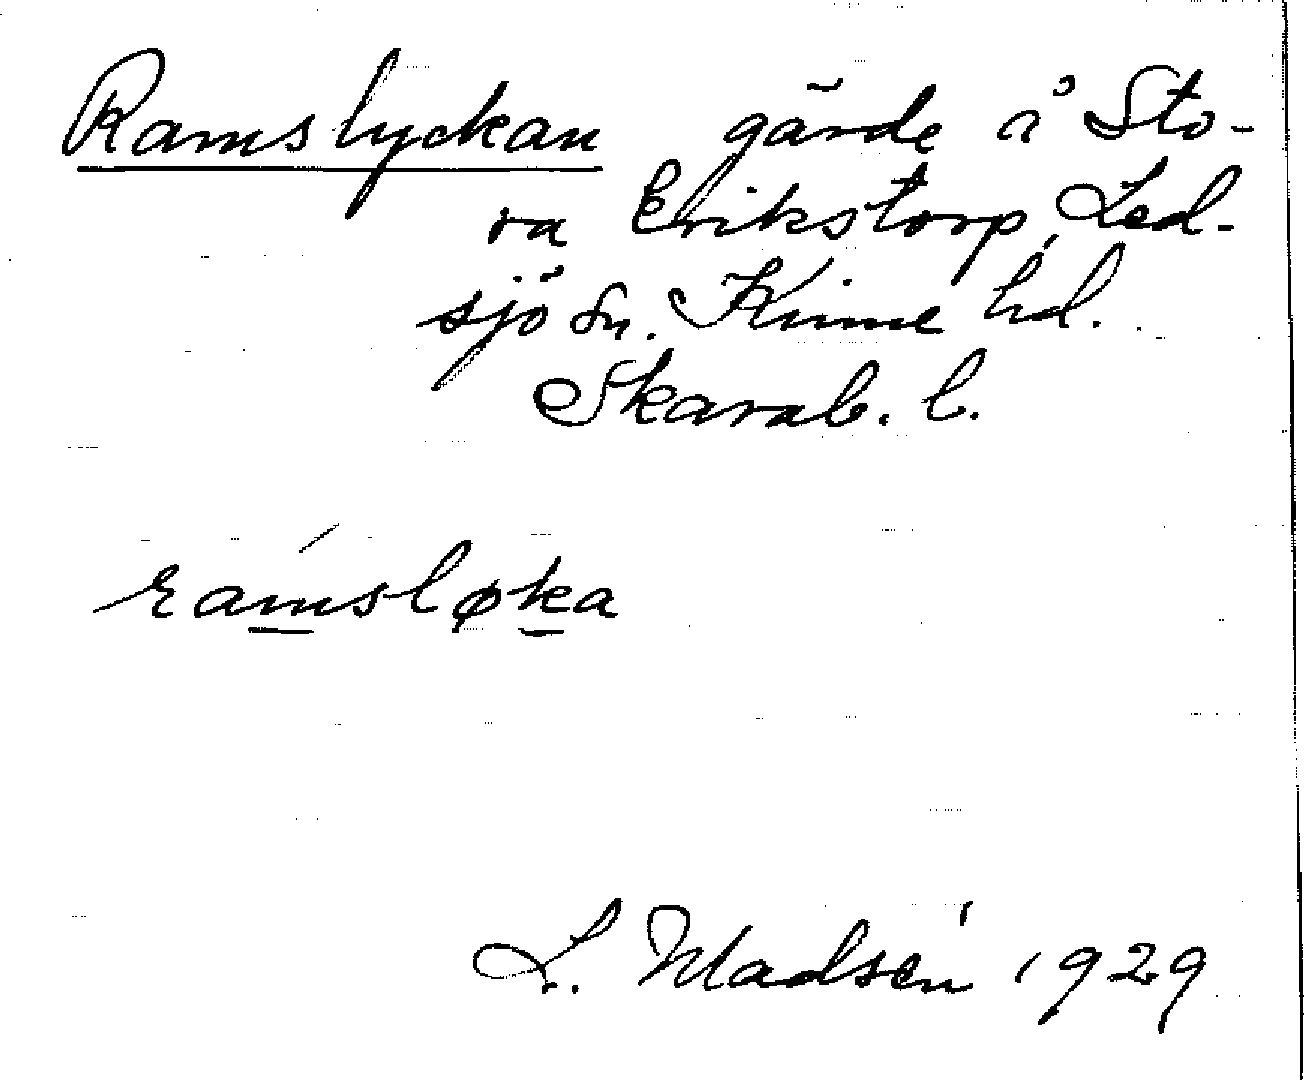 Ramslyckan gärde i Sto-
ra Erikstorp, Led-
sjö sn. Kinne hd.
Skarab. l.
ramsløka
L. Madsén 1929